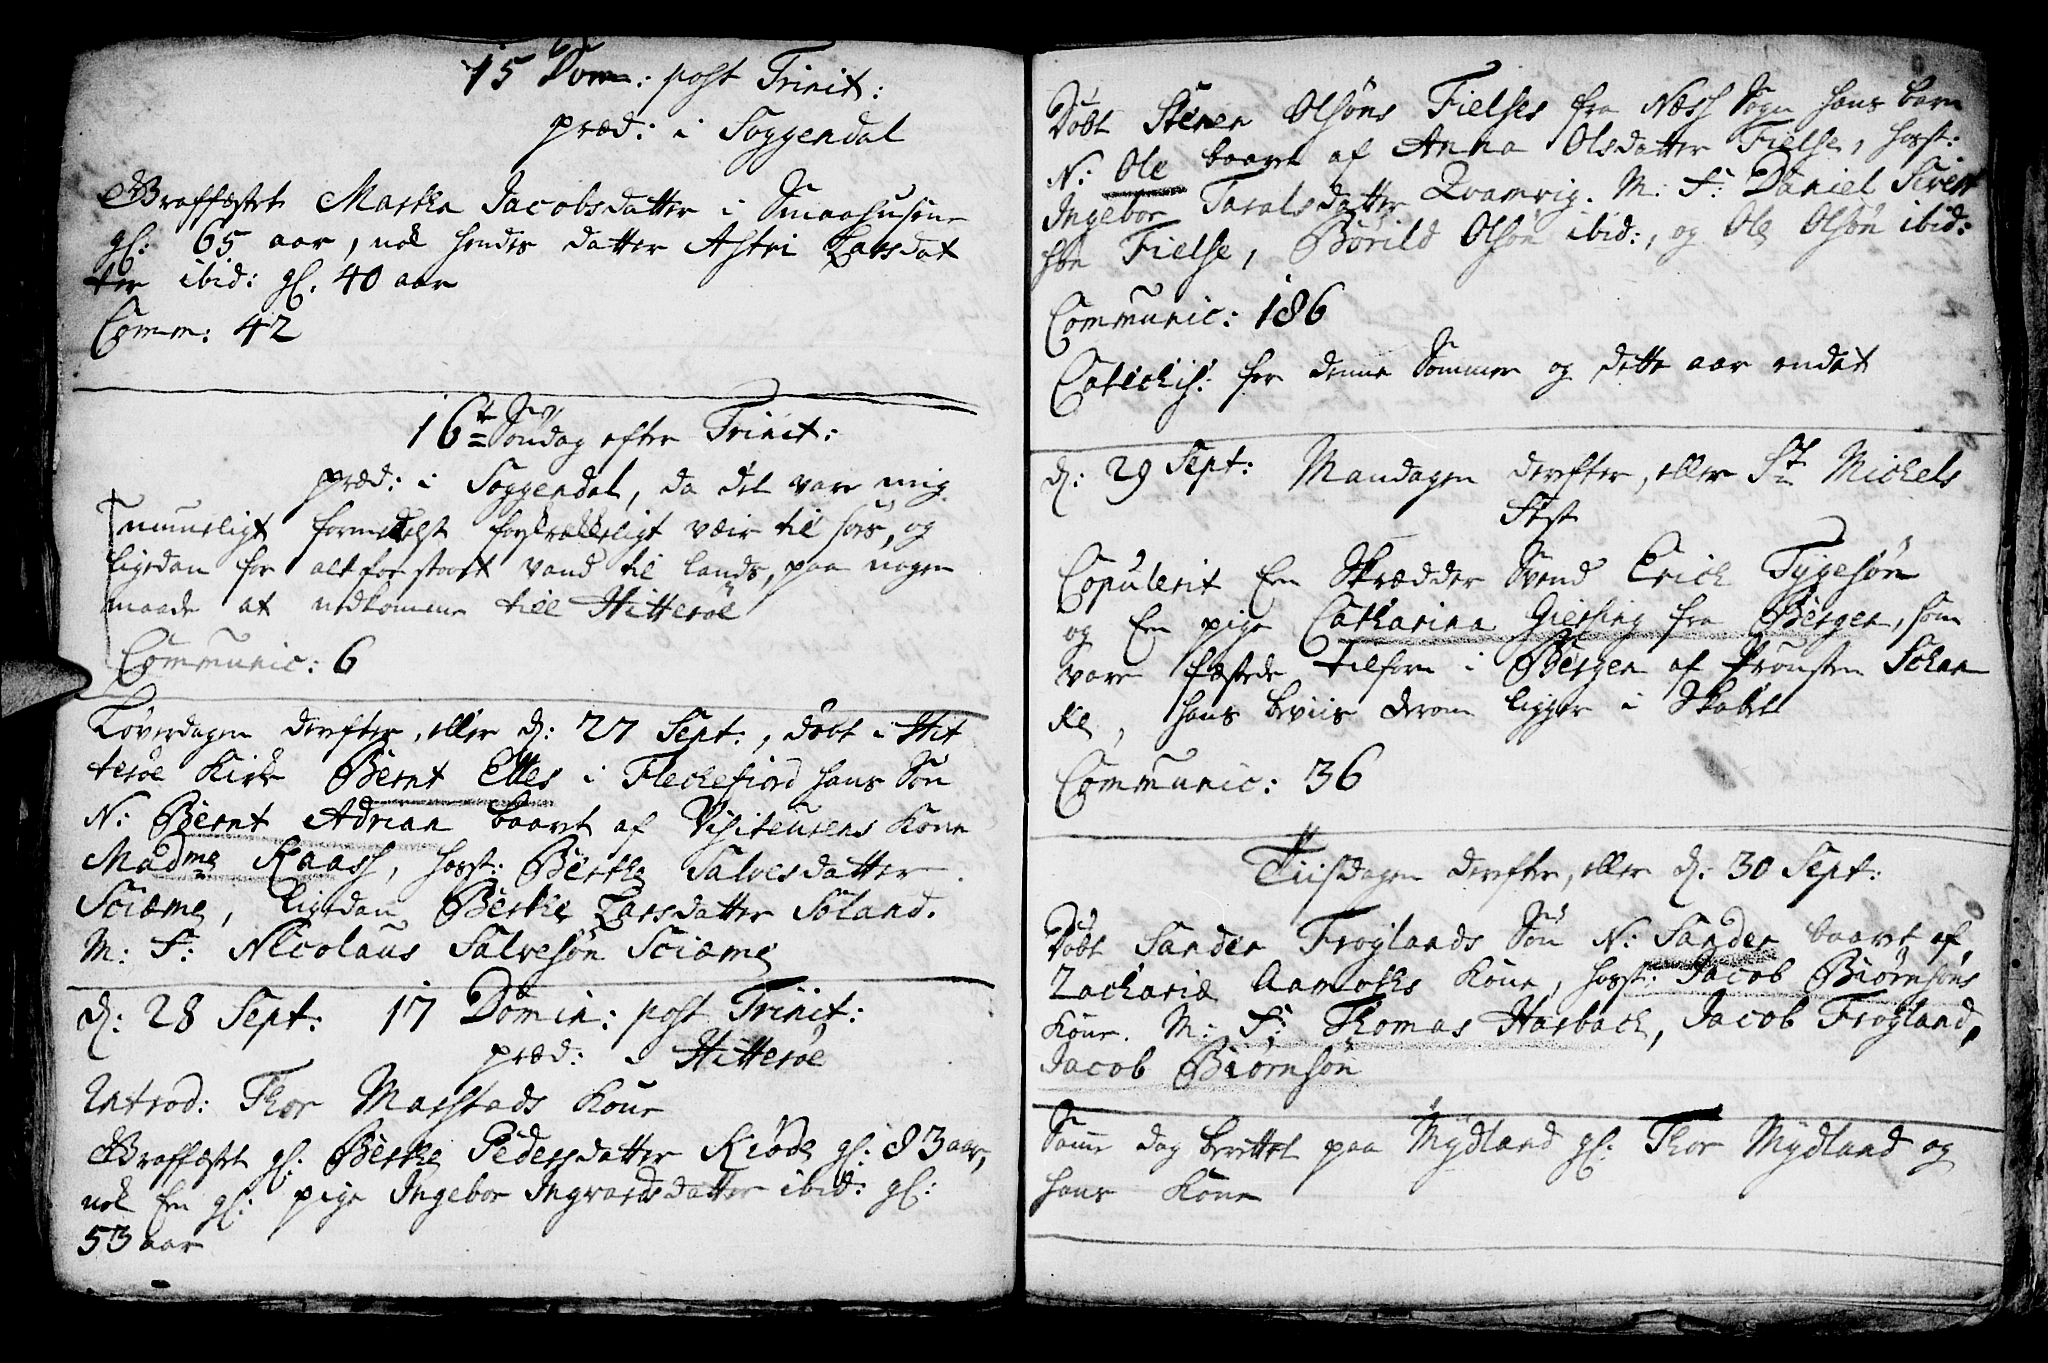 15 Dom: post Trinit:
præd: i Soggendal
Graffæstet Martha Jacobsdatter i Smaahusene
gl: 65 aar, nok hendes datter Astri Larsdat
ter ibid: gl. 40 aar
Comm: 42
16de Søndag efter Trinit:
præd: i Soggendal, da det vare mig
umueligt formedelst forskrækkeligt væir til søes, og
ligedan for alt for stoort vand til lands, paa nogen
maade at nedkomme till Hitterøe
Communic: 6
Løverdagen derefter, eller d: 27 Sept:, døbt i Hit
terøe Kirke Bernt Elles i Fleckefiord hans Søn
N: Bernt Adrian baaret af Visiteurens Kone
Madme Kaass, hosst: Berthe Salvesdatter
Sciæme, ligedan Berthe Larsdatter Soland.
M: F: Nicolaus Salvesøn Sciæme
d: 28 Sept: 17 Domin: post Trinit:
præd: i Hitterøe
Introd: Thor Madstads Kone
Graffæstet gl: Berthe Pedersdatter Kiøde gl: 83 aar,
nok En gl: pige Ingebor Ingvardsdatter ibid: gl:
53 aar
Døbt Stener Olsøns Fielses fra Næss Sogn hans barn
N: Ole baaret af Anna Olsdatter Fielse, hosst:
Ingebor Taralsdatter Qvamvig. M: F: Daniel Siver
søn Fielse, Børild Olsøn ibid:, og Ole Olsøn ibid:
Communic: 186
Catechis: for denne Sommer og dette aar endet
d: 29 Sept: Mandagen derefter, eller St Michels
Fest
Copulerit En Skrædder Svend Erich Tygesøn
og En pige Catharina Giersing fra Bergen, som
vare fæstede tilforn i Bergen af Prousten
hans beviis derom ligger i Skabet
Communic: 36
Tiisdagen derefter, eller d: 30 Sept:
Døbt Sander Froylands Søn N: Sander baaret af
Zachariæ Aamodts Kone, hosst: Jacob Biørnsøns
Kone. M: F: Thomas Harbach, Jacob Froyland,
Jacob Biørnsøn
Samme dag berettet paa Mydland gl: Thor Mydland og
hans Kone